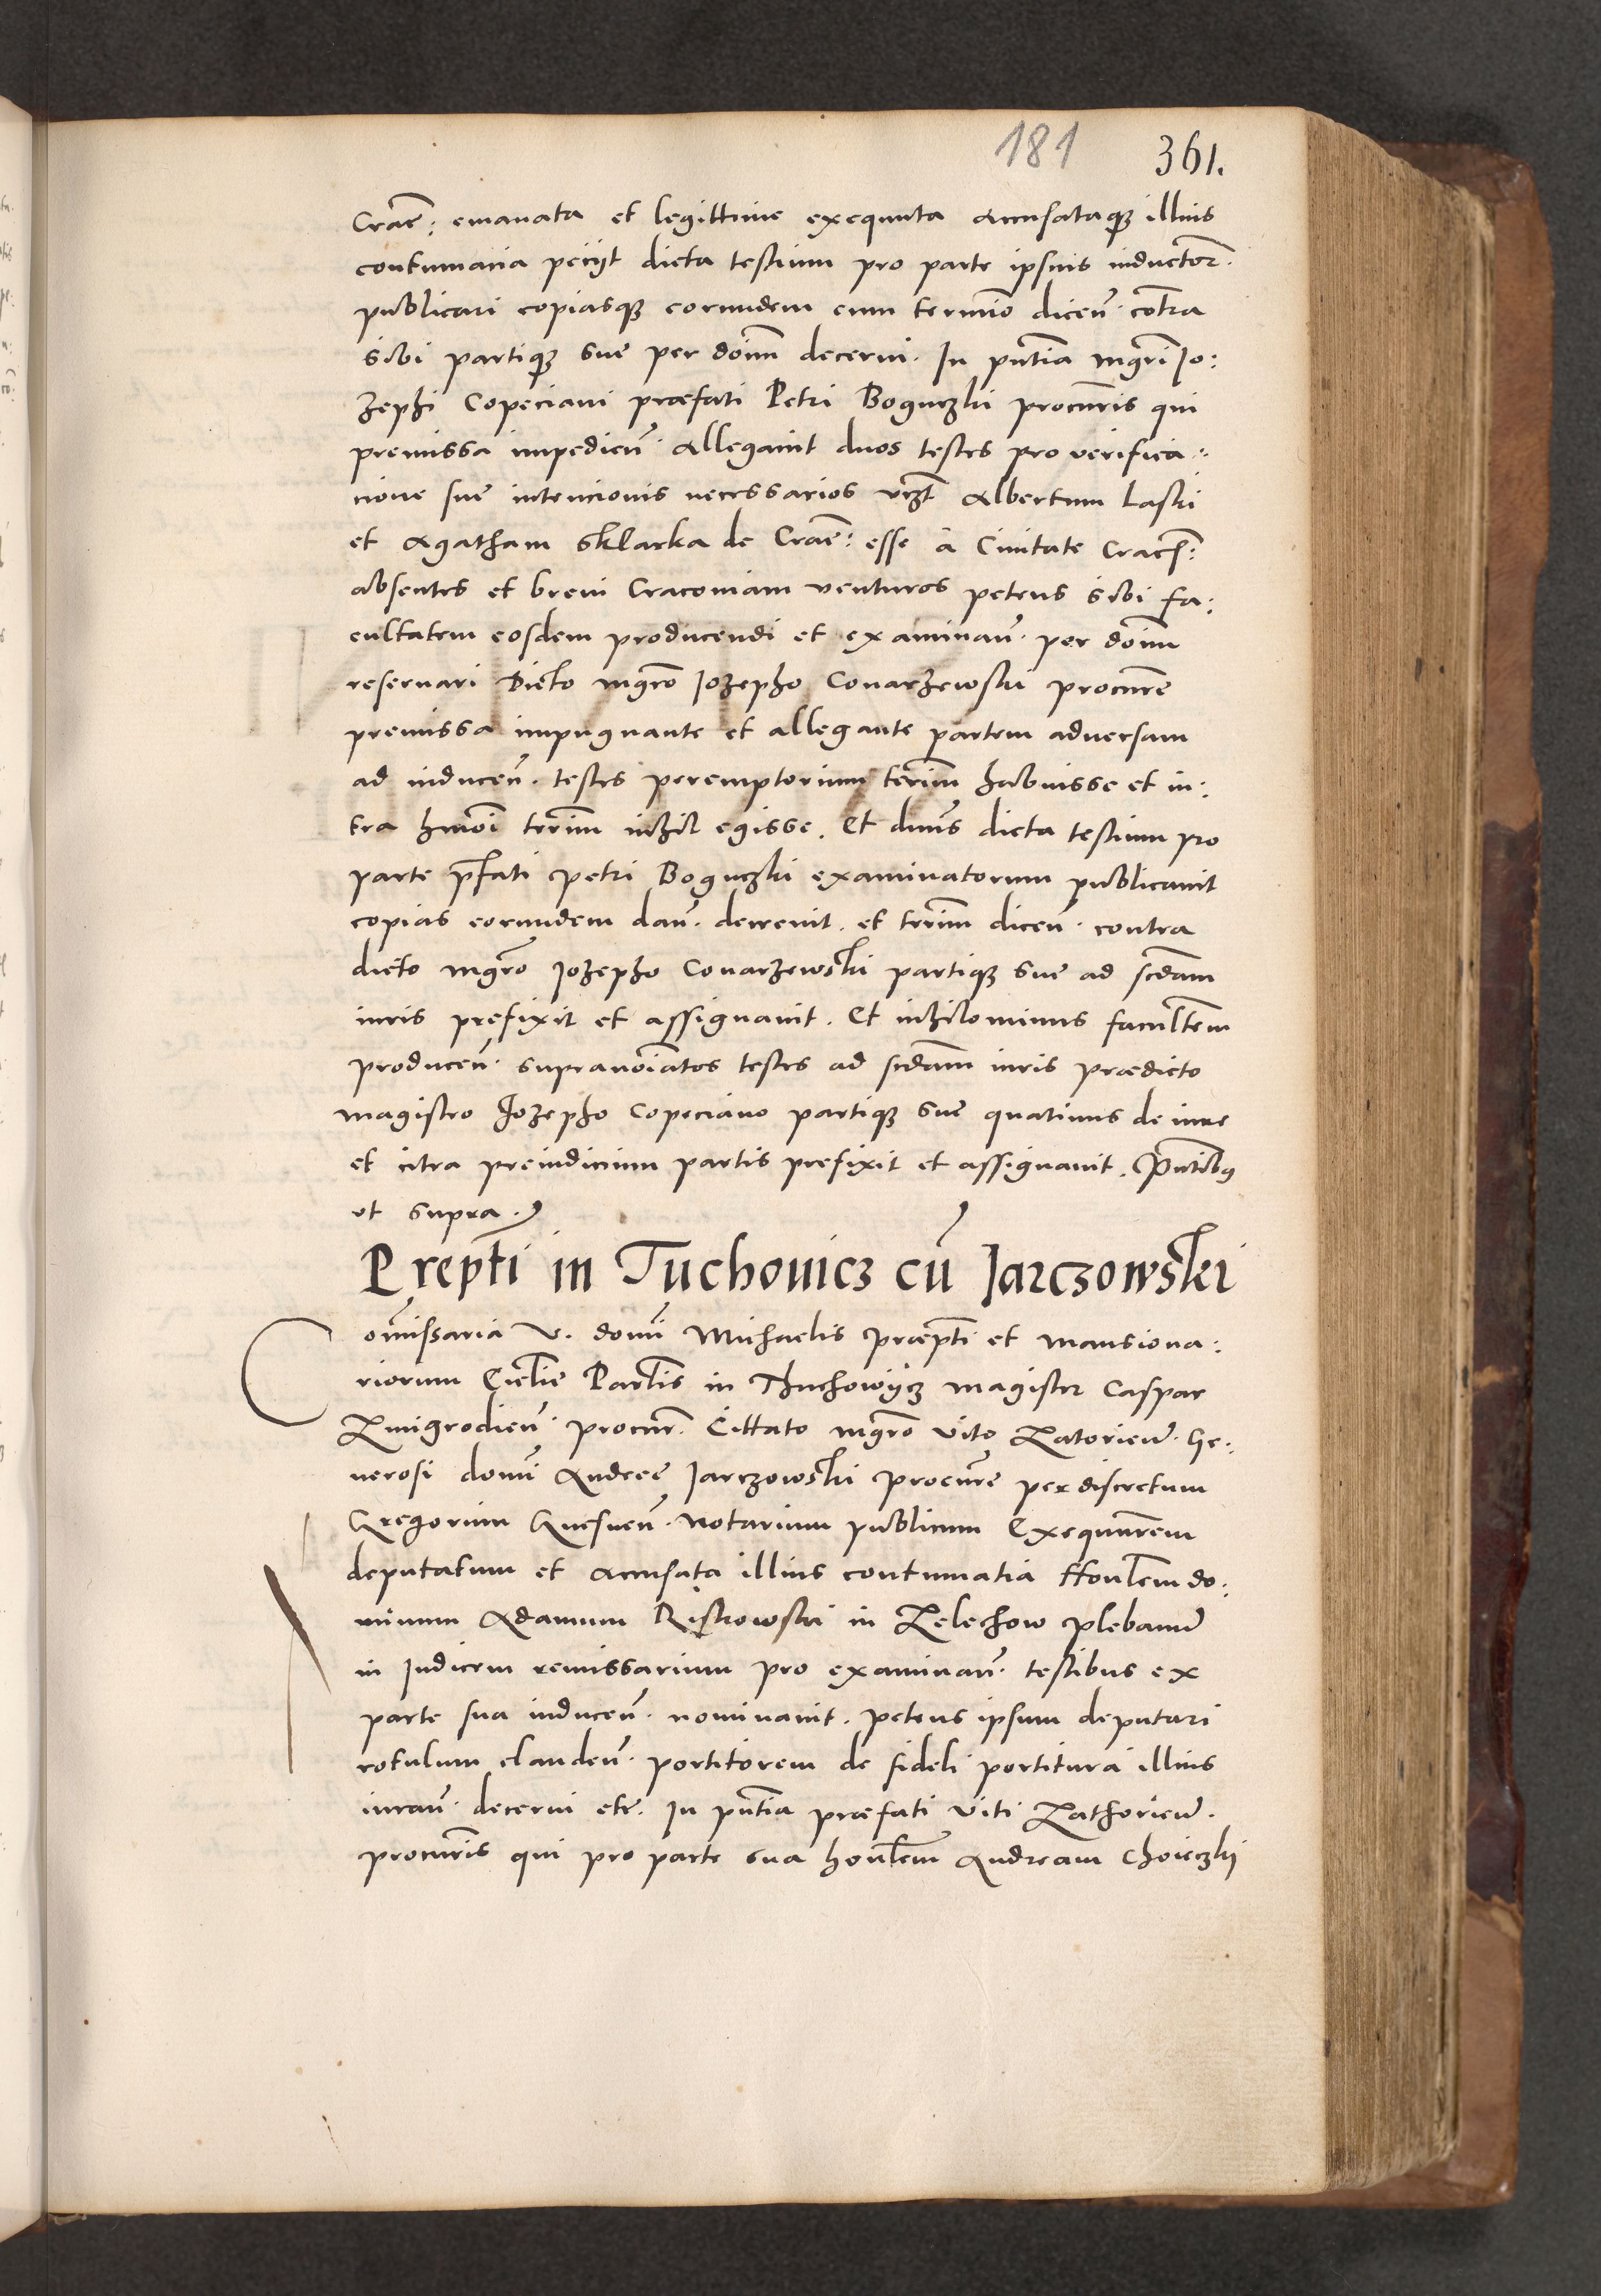 181 361.
Crače: emanata et legittime exequuta accusataqz illius
contumacia peciit dicta testium pro parte ipsius inductorz.
publicari copiasqz eorundem cum termio dicen̄. cōtra
sibi partiqz sue per doīm decerni. In pn̄tia mgrī Jo:
zephi Copeciani præfati Petri Boguczki procurīs qui
premissa impedien̄. allegavit duos testes pro verifica:
cione sue intencionis necessarios vz̄t Albertum Laski
et Agatham Sklarka de Crač: esse à Civitate Cracēn:
absentes et brevi Cracoviam venturos petens sibi fa:
cultatem eosdem producendi et examinan̄. per doīm
reservari Dicto mgrō Jozepho Conarzewski procurē
premissa impugnante et allegante partem adversam
ad inducen̄. testes peremptorium term̄ habuisse et in:
tra hmōi term̄ nihil egisse. Et dnūs dicta testium pro
parte p̄fati Petri Boguczki examinatorum publicavit
copias eorundem dan̄. decrevit. et term̄ dicen̄. contra
dicto mgrō Jozepho Conarzewski partiqz sue ad scdam
iuris prefixit et assignavit. Et nihilominus facultem
producen̄. supranoīatos testes ad scdam iuris prædicto
magistro Jozepho Copeciano partiqz sue quatinus de iure
et citra preiudicium partis prefixit et assignavit. Pn̄tibus
ut supra.
Prepti in Tuchovicz cū Jarczowski
Comissaria V. domī Michaelis præpti et mansiona:
riorum Ecclie Parlis in Thuchowycz magister Caspar
Zmigrodien̄. procur. Cittato mgrō Vito Zatorien̄. Ge:
nerosi domī Andree Jarczowski procurē per discretum
Gregorium Gnesnen̄. Notarium publicum Exequutem
deputatum et accusata illius contumatia Honlem do:
minum Adamum Ristowski in Zelechow plebanum
in Judicem remissarium pro examinan̄. testibus ex
parte sua inducen̄. nominavit. petens ipsum deputari
rotulum clauden̄. portitorem de fideli portitura illius
iuran̄. decerni etc. In pn̄tia præfati Viti Zathorien̄.
procurīs qui pro parte sua honlem Andream Choieczki